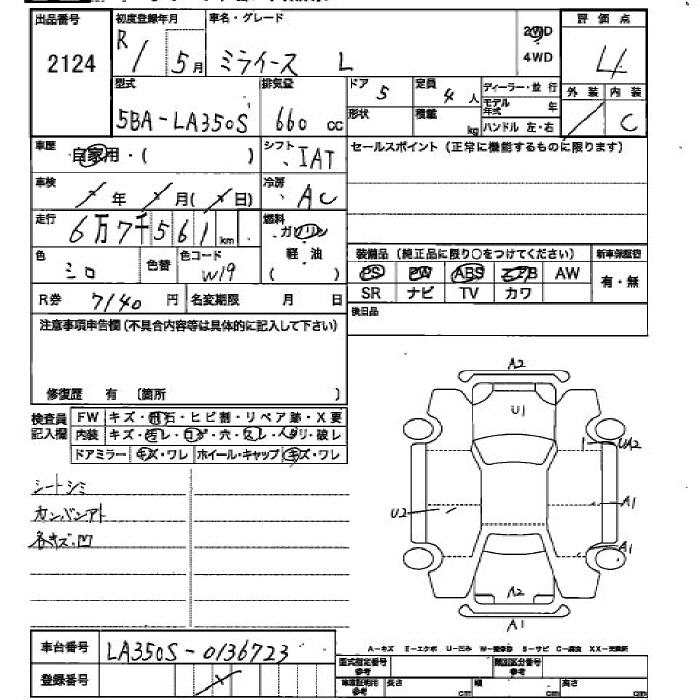 出品番号 2124
初度登録年月 R1 5月
車名・グレード ミライース L
2WD
4WD
評価点 4
外装 内装 C
型式 5BA-LA350S
排気量 660 cc
ドア 5
形状
定員 4人
積載 kg
ディーラー・並行
モデル年式 年
ハンドル 左・右
車歴 自家用・( )
シフト IAT
セールスポイント (正常に機能するものに限ります)
車検 年 月( 日)
冷房 AC
走行 6万7千561km
燃料 ガソリン
軽・油
( )
色 シロ
色替
色コード W19
装備品 (純正品に限り○をつけてください)
新車保証書
PS PW ABS エアB AW
有・無
SR ナビ TV カワ
R券 7140 円
名変期限 月 日
後日品
注意事項申告欄(不具合内容等は具体的に記入して下さい)
修復歴 有 〔箇所 〕
検査員記入欄
FW キズ・飛石・ヒビ割・リペア跡・X要
内装 キズ・汚レ・コゲ・穴・スレ・ヘタリ・破レ
ドアミラー キズ・ワレ ホイール・キャップ キズ・ワレ
シートシミ
カンバンアト
各キズ.凹
A2
U1
UA2
A1
U2
A1
A2
A1
車台番号 LA350S-0136723
登録番号
A-キズ E-エクボ U-凹ミ W-補修跡 S-サビ C-腐食 XX-交換済
型式指定番号 参考
類別区分番号 参考
車庫証明用 参考 長さ cm 幅 cm 高さ cm